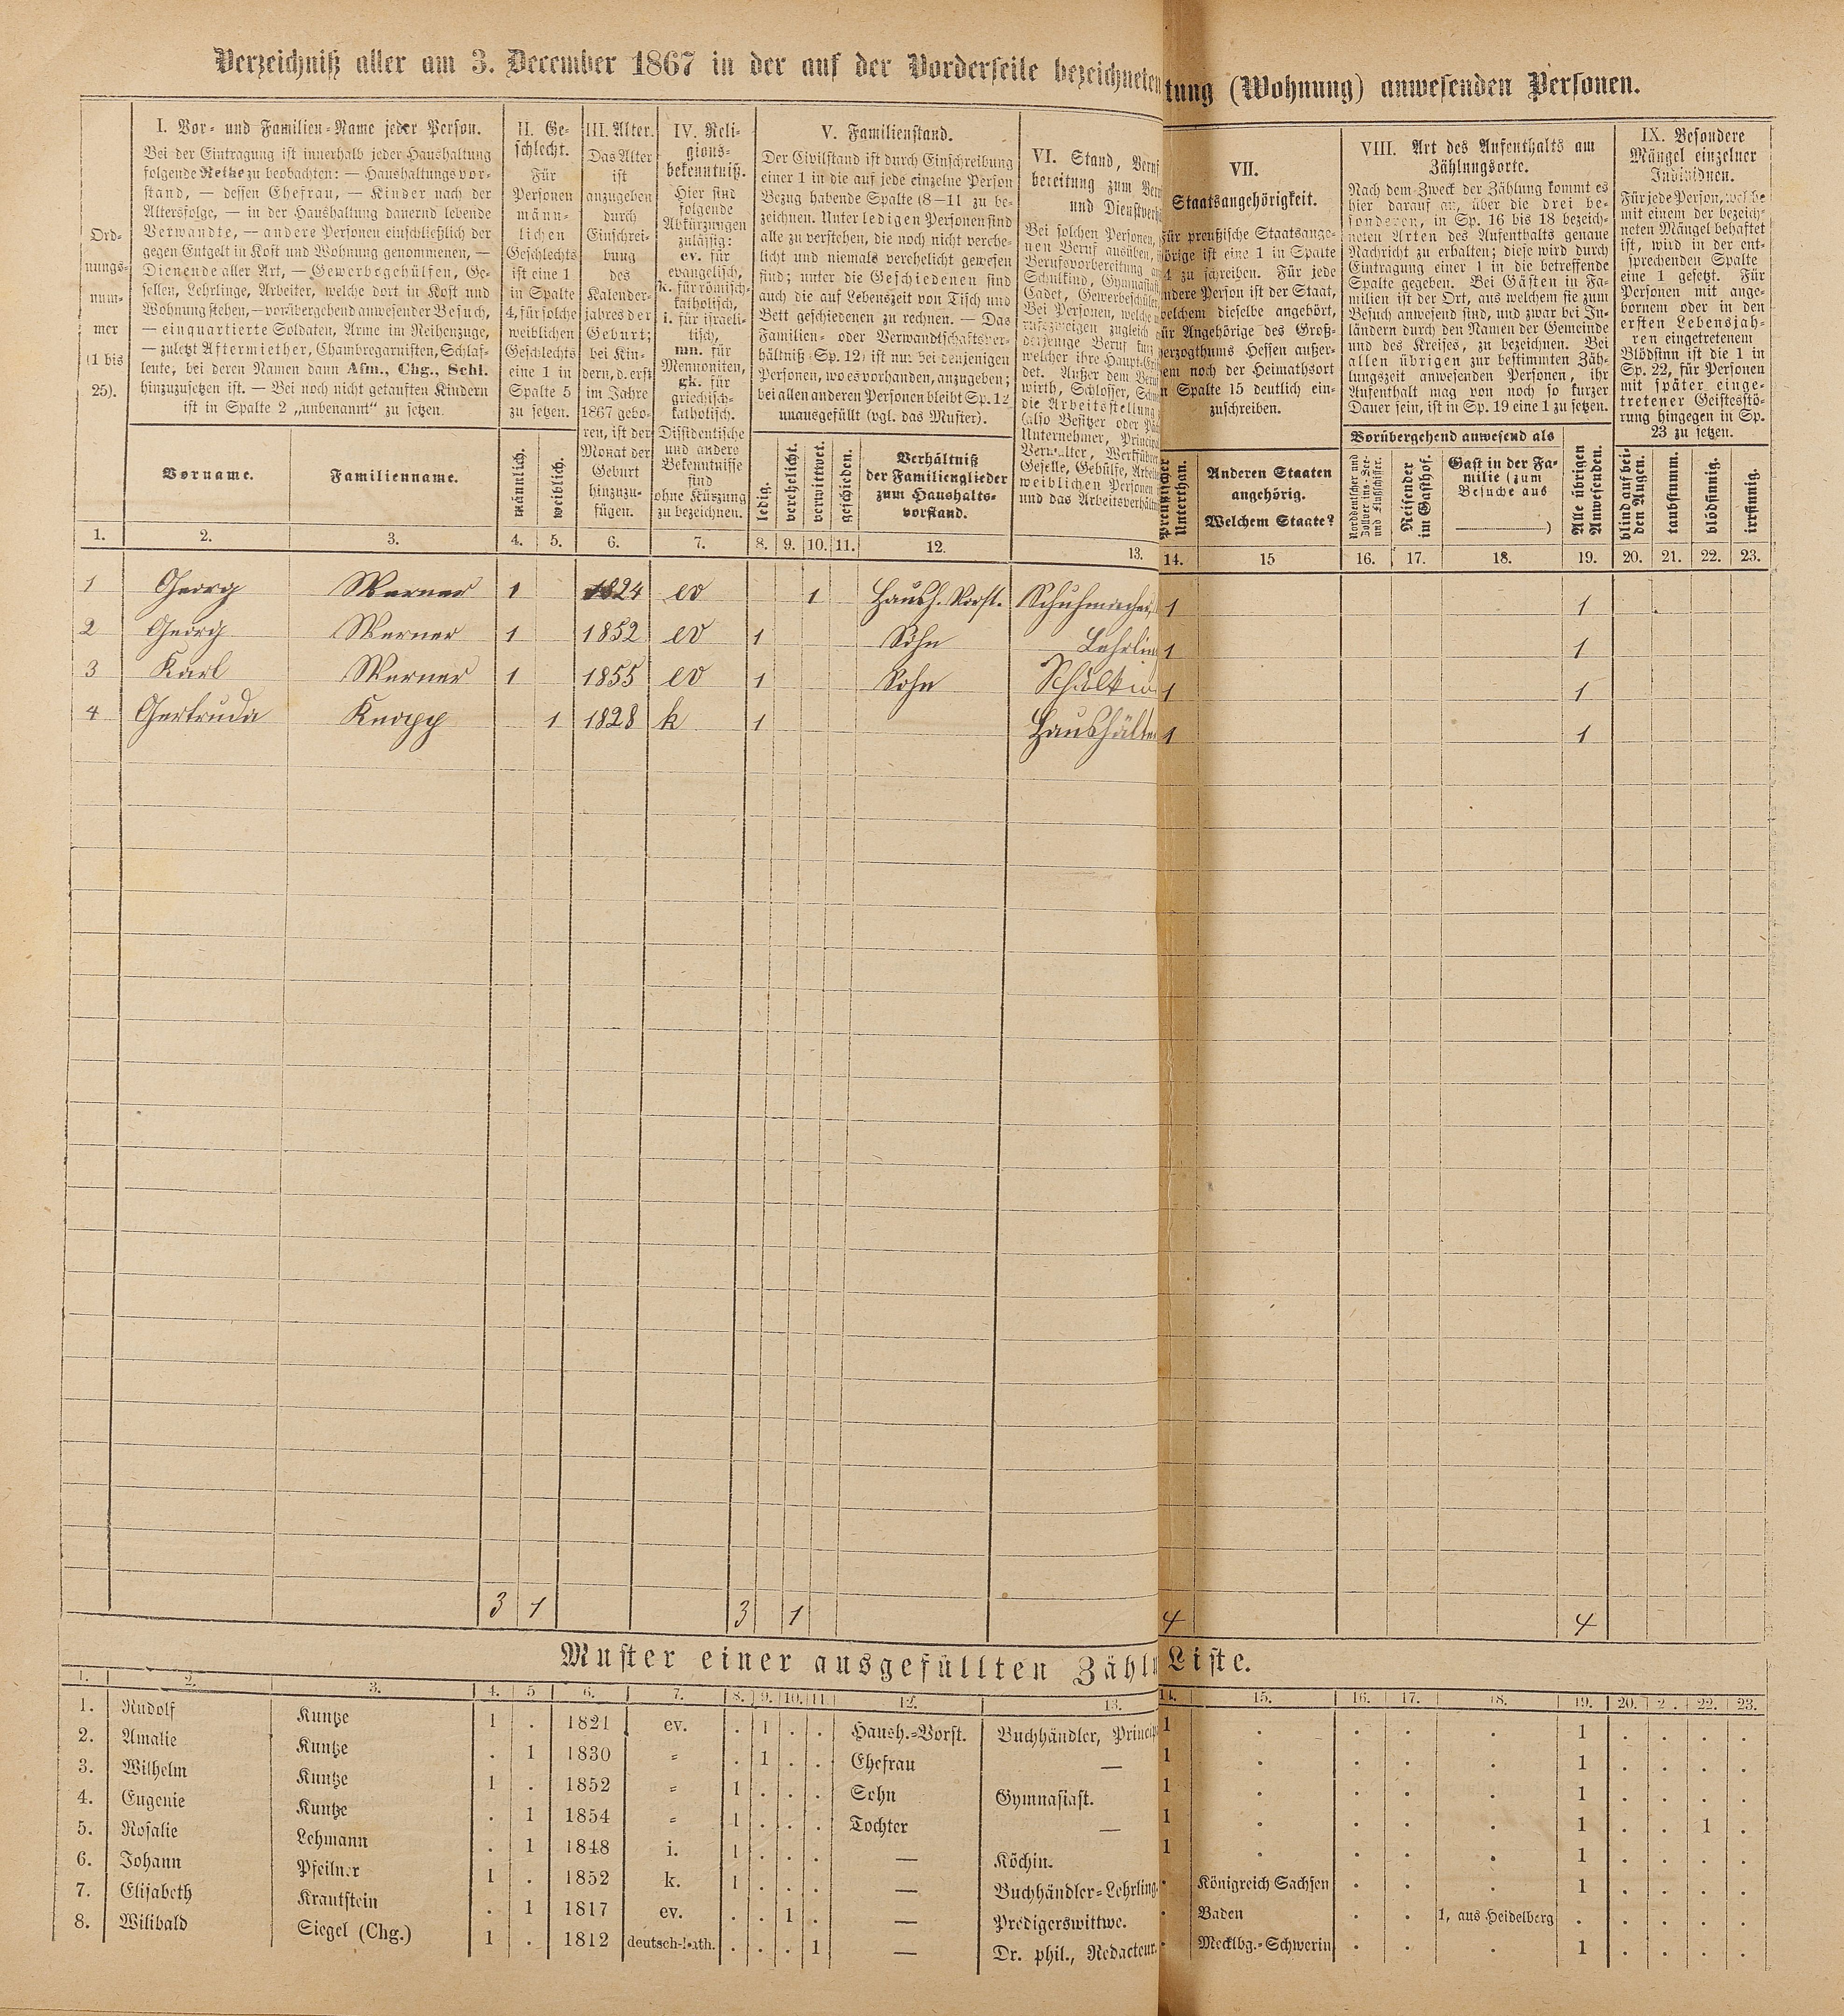 Verzeichniß aller am 3. December 1867 in der auf der Vorderseite bezeichneten
tung (Wohnung) anwesenden Personen.
Ord-
nungs-
num-
mer
(1 bis
25).
I. Vor- und Familien-Name jeder Person.
Bei der Eintragung ist innerhalb jeder Haushaltung
folgende Reihe zu beobachten: — Haushaltungsvor-
stand, — dessen Ehefrau, — Kinder nach der
Altersfolge, — in der Haushaltung dauernd lebende
Verwandte, — andere Personen einschließlich der
gegen Entgelt in Kost und Wohnung genommenen, —
Dienende aller Art, — Gewerbegehülfen, Ge-
sellen, Lehrlinge, Arbeiter, welche dort in Kost und
Wohnung stehen, — vorübergehend anwesender Besuch,
— einquartierte Soldaten, Arme im Reihenzuge,
— zuletzt Aftermiether, Chambregarnisten, Schlaf-
leute, bei deren Namen dann Afm., Chg., Schl.
hinzuzusetzen ist. — Bei noch nicht getauften Kindern
ist in Spalte 2 „unbenannt“ zu setzen.
Vorname.
Familienname.
II. Ge-
schlecht.
Für
Personen
männ-
lichen
Geschlechts
ist eine 1
in Spalte
4, für solche
weiblichen
Geschlechts
eine 1 in
Spalte 5
zu setzen.
männlich.
weiblich.
III. Alter.
Das Alter
ist
anzugeben
durch
Einschrei-
bung
des
Kalender-
jahres der
Geburt;
bei Kin-
dern, d. erst
im Jahre
1867 gebo-
ren, ist der
Monat der
Geburt
hinzuzu-
fügen.
IV. Reli-
gions-
bekenntniß.
Hier sind
folgende
Abkürzungen
zulässig:
ev. für
evangelisch,
k. für römisch-
katholisch,
i. für israeli-
tisch,
mn. für
Mennoniten,
gk. für
griechisch-
katholisch.
Dissidentische
und andere
Bekenntnisse
sind
ohne Kürzung
zu bezeichnen.
V. Familienstand.
Der Civilstand ist durch Einschreibung
einer 1 in die auf jede einzelne Person
Bezug habende Spalte (8—11 zu be-
zeichnen. Unter ledigen Personen sind
alle zu verstehen, die noch nicht verehe-
licht und niemals verehelicht gewesen
sind; unter die Geschiedenen sind
auch die auf Lebenszeit von Tisch und
Bett geschiedenen zu rechnen. — Das
Familien- oder Verwandtschaftsver-
hältniß (Sp. 12) ist nur bei denjenigen
Personen, wo es vorhanden, anzugeben;
bei allen anderen Personen bleibt Sp. 12
unausgefüllt (vgl. das Muster).
ledig.
verehelicht.
verwittwet.
geschieden.
Verhältniß
der Familienglieder
zum Haushalts-
vorstand.
VI. Stand, Beruf
bereitung zum Ber
und Dienstverh
Bei solchen Personen,
nen Beruf ausüben,
Berufsvorbereitung
Schulkind, Gymnasiast
Cadet, Gewerbeschüler
Bei Personen, welche
rufszweigen zugleich
derjenige Beruf
welcher ihre Haupt-
det. Außer dem Beruf
wirth, Schlosser,
die Arbeitsstellung
(also Besitzer oder
Unternehmer, Princip
Verwalter, Werkführer
Geselle, Gehülfe, Arbei
weiblichen Personen
und das Arbeitsverhält
VII.
Staatsangehörigkeit.
Für preußische Staatsange-
hörige ist eine 1 in Spalte
4 zu schreiben. Für jede
andere Person ist der Staat,
welchem dieselbe angehört,
für Angehörige des Groß-
herzogthums Hessen außer-
dem noch der Heimathsort
in Spalte 15 deutlich ein-
zuschreiben.
Preußischer
Unterthan.
Anderen Staaten
angehörig.
Welchem Staate?
VIII. Art des Aufenthalts am
Zählungsorte.
Nach dem Zweck der Zählung kommt es
hier darauf an, über die drei be-
sonderen, in Sp. 16 bis 18 bezeich-
neten Arten des Aufenthalts genaue
Nachricht zu erhalten; diese wird durch
Eintragung einer 1 in die betreffende
Spalte gegeben. Bei Gästen in Fa-
milien ist der Ort, aus welchem sie zum
Besuch anwesend sind, und zwar bei In-
ländern durch den Namen der Gemeinde
und des Kreises, zu bezeichnen. Bei
allen übrigen zur bestimmten Zäh-
lungszeit anwesenden Personen, ihr
Aufenthalt mag von noch so kurzer
Dauer sein, ist in Sp. 19 eine 1 zu setzen.
Vorübergehend anwesend als
Norddeutscher und
Zollver ins-See-
und Flußschiffer.
Reisender
im Gasthof.
Gast in der Fa-
milie (zum
Besuche aus
)
Alle übrigen
Anwesenden.
IX. Besondere
Mängel einzelner
Individuen.
Für jede Person, welche
mit einem der bezeich-
neten Mängel behaftet
ist, wird in der ent-
sprechenden Spalte
eine 1 gesetzt. Für
Personen mit ange-
bornem oder in den
ersten Lebensjah-
ren eingetretenem
Blödsinn ist die 1 in
Sp. 22, für Personen
mit später einge-
tretener Geistesstö-
rung hingegen in Sp.
23 zu setzen.
blind auf bei-
den Augen.
taubstumm.
blödsinnig.
irrsinnig.
1. 2. 3. 4. 5. 6. 7. 8. 9. 10. 11. 12. 13. 14. 15 16. 17. 18. 19. 20. 21. 22. 23.
1 Georg Werner 1 1824 ev 1 Haush. Vorst. Schuhmacher, 1 1
2 Georg Werner 1 1852 ev 1 Sohn Lehrlin 1 1
3 Karl Werner 1 1855 ev 1 Sohn Schulkin 1 1
4 Gertruda Knapp 1 1828 k 1 Haushälte 1 1
3 1 3 1 4 4
Muster einer ausgefüllten Zähl Liste.
1. 2. 3. 4. 5 6. 7. 8. 9. 10. 11 12. 13. 14. 15. 16. 17. 18. 19. 20. 2 . 22. 23.
1. Rudolf Kuntze 1 . 1821 ev. . 1 . . Haush.-Vorst. Buchhändler, Princip 1 . . . . 1 . . . .
2. Amalie Kuntze . 1 1830 = . 1 . . Ehefrau — 1 . . . . 1 . . . .
3. Wilhelm Kuntze 1 . 1852 = 1 . . . Sohn Gymnasiast. 1 . . . . 1 . . . .
4. Eugenie Kuntze . 1 1854 = 1 . . . Tochter — 1 . . . . 1 . . 1 .
5. Rosalie Lehmann . 1 1848 i. 1 . . . — Köchin. 1 . . . . 1 . . . .
6. Johann Pfeilner 1 . 1852 k. 1 . . . — Buchhändler-Lehrling. . Königreich Sachsen . . . 1 . . . .
7. Elisabeth Krautstein . 1 1817 ev. . . 1 . — Predigerswittwe. . Baden . . 1, aus Heidelberg . . . . .
8. Wilibald Siegel (Chg.) 1 . 1812 deutsch-kath. . . . 1 — Dr. phil., Redacteur. . Mecklbg.-Schwerin . . . 1 . . . .